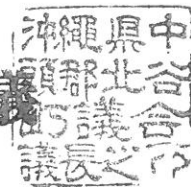 沖繩県中
頭郡北谷
町議会
議長之印
議